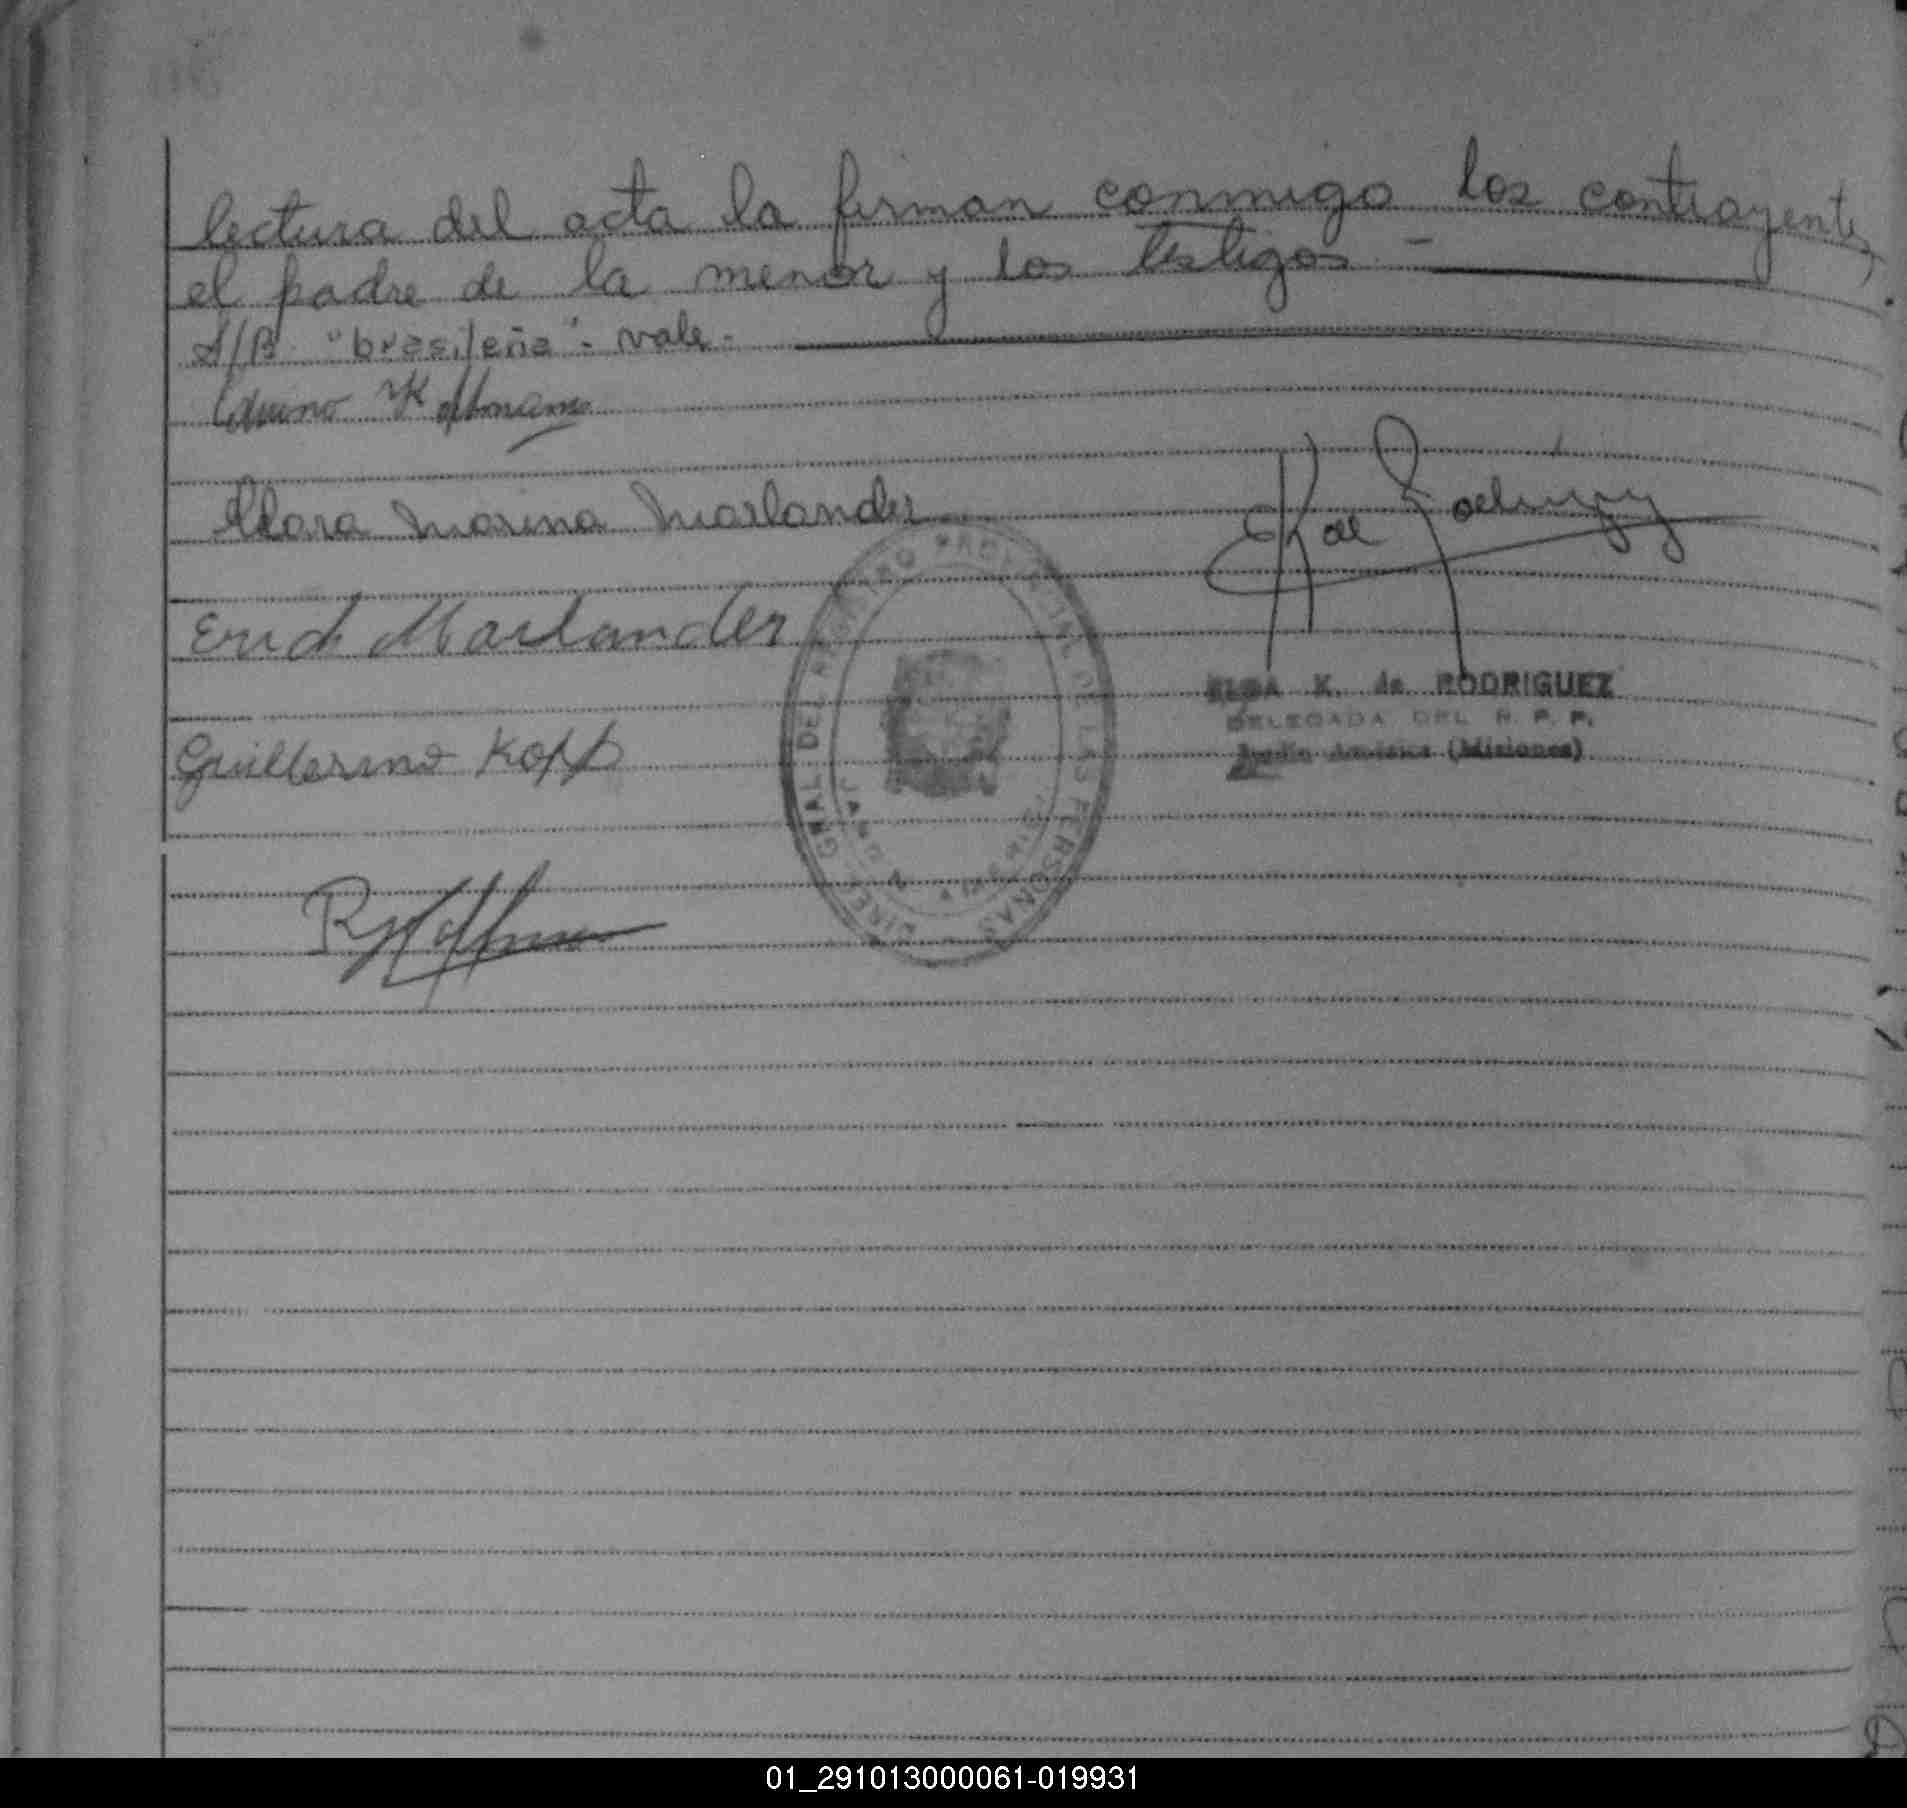 lectura del acta la firman conmigo los contrayentes,
el padre de la menor y los testigos. -
S/B "brasileña". vale.
Clara Marina Marlander
Erich Marlander
K. de RODRIGUEZ
DELEGADA DEL R. P. P.
(Misiones)
Guillermo Kopp
DIREC. GRAL. DEL REGISTRO PROVINCIAL DE LAS PERSONAS
01_291013000061-019931